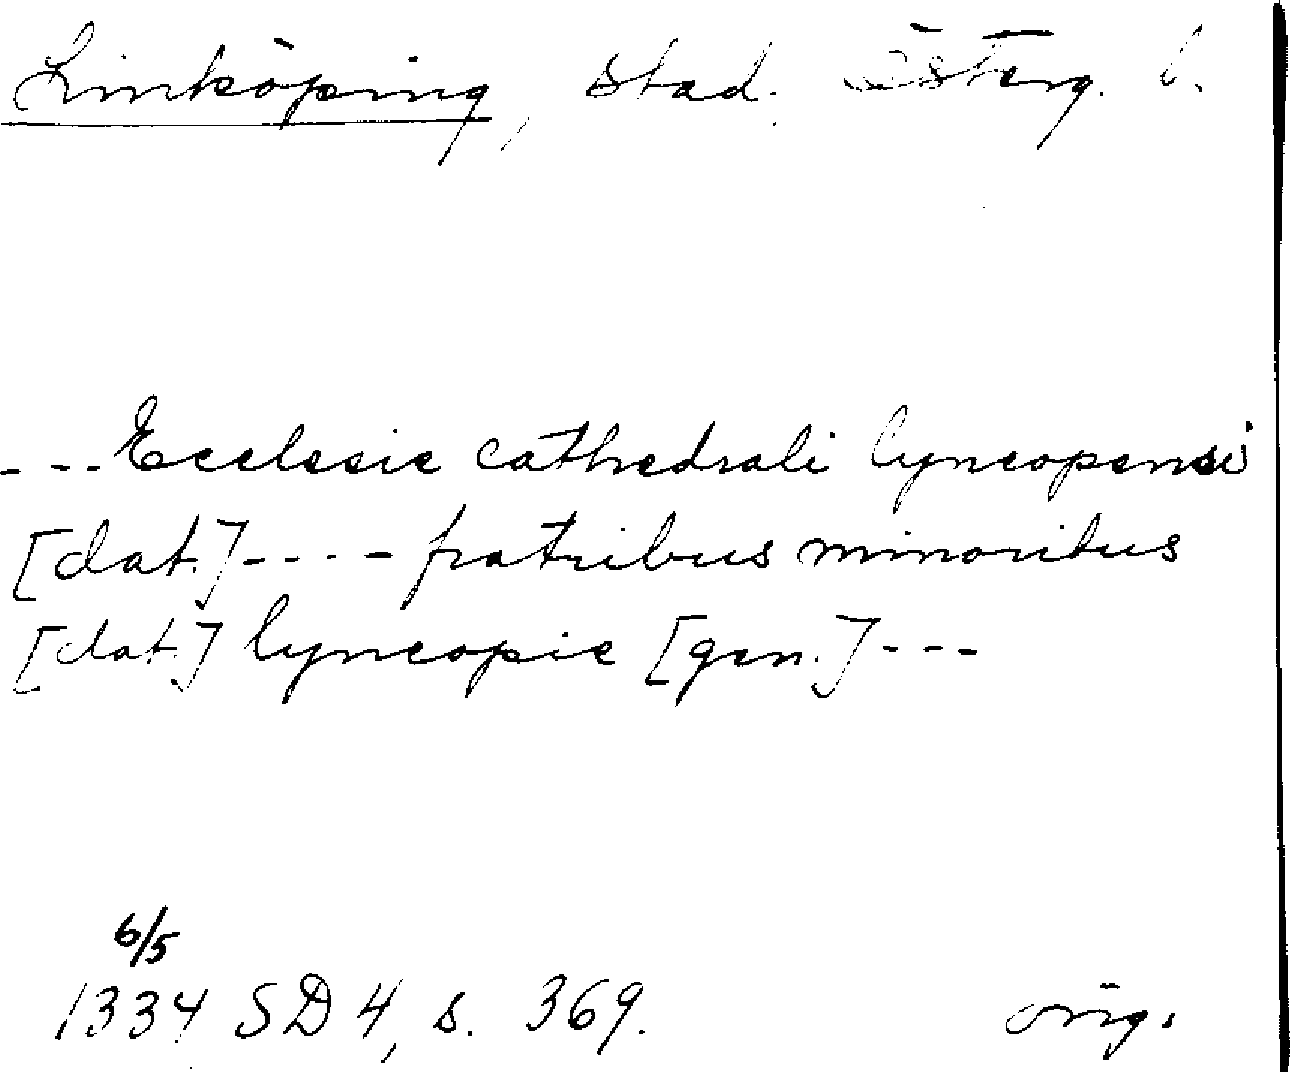 Linköping, stad. Österg. l.
---Ecclesie cathedrali lyncopensi
[dat.]---- fratribus minoribus
[dat.] lyncopie [gen.]---
6/5
1334 SD 4, s. 369. orig.